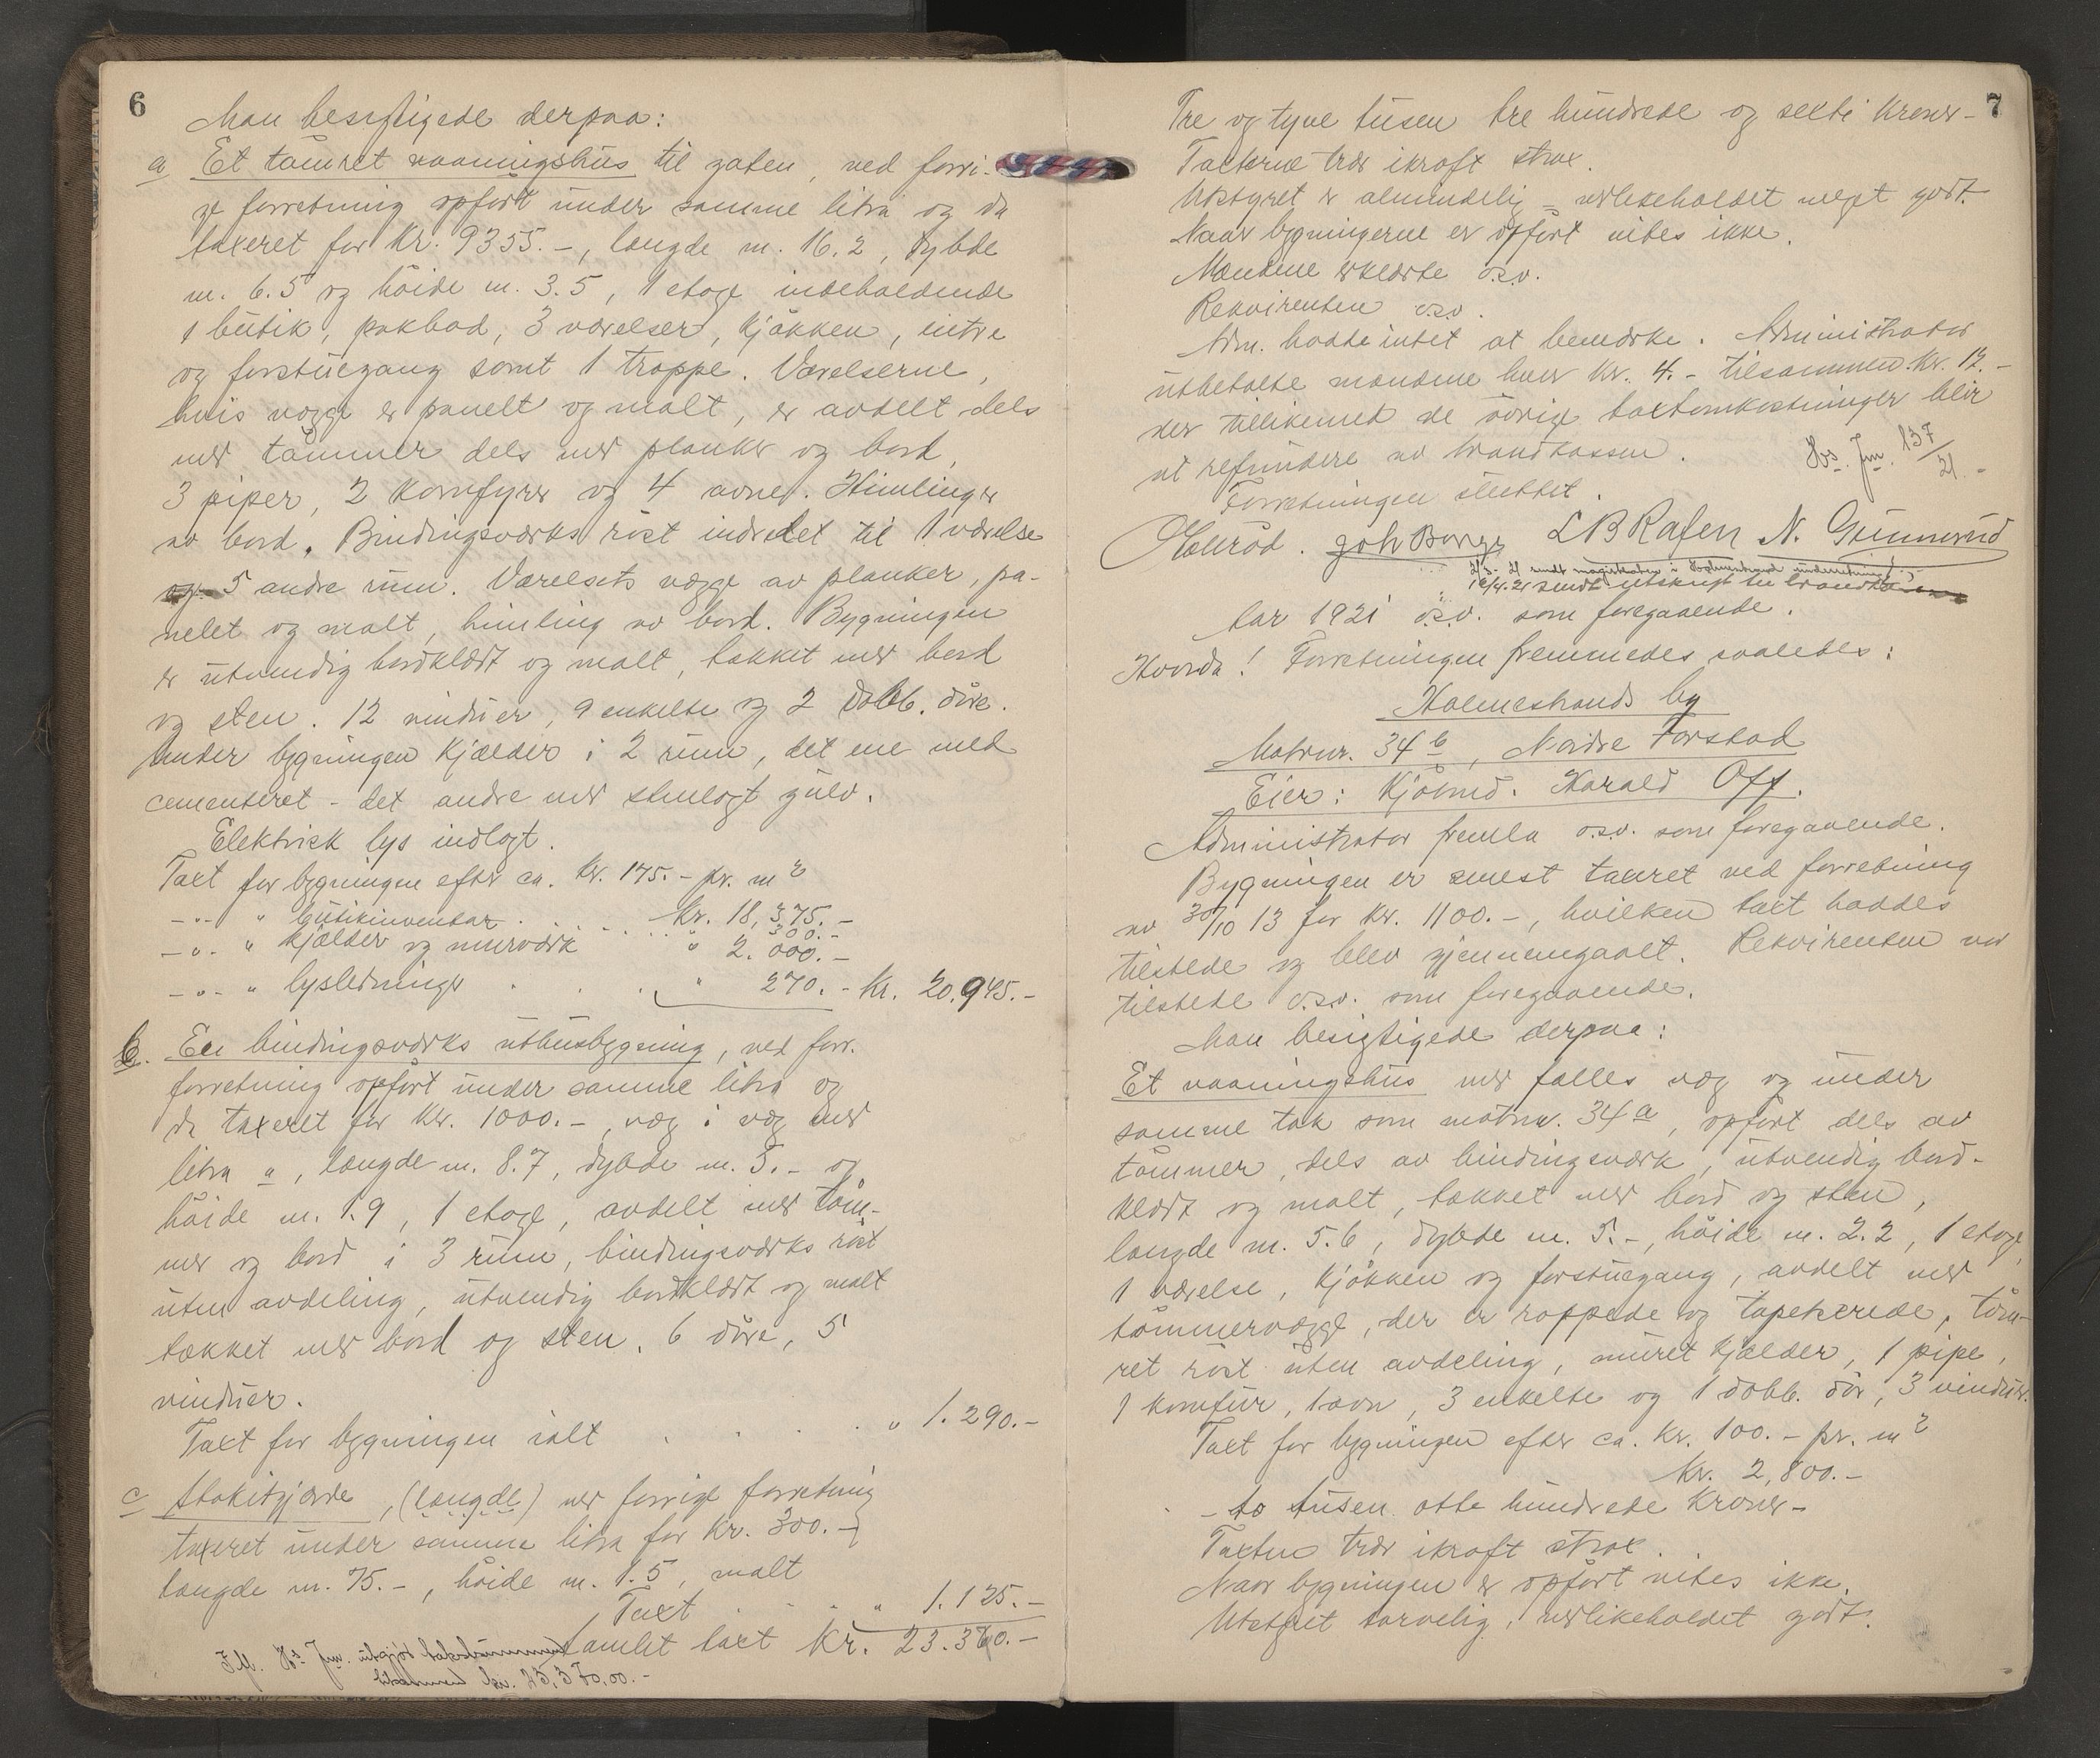 6
Man besigtigede derpaa:
a Et tømret vaaningshus til gaten, ved forri-
ge forretning opført under samme litra og da
taxeret for Kr. 9355.-, længde m. 16.2, dybde
m. 6.5 og høide m. 3.5, 1 etage indeholdende
1 butik, pakbod, 3 værelser, kjøkken, entre
og forstuegang samt 1 trappe. Værelserne,
hvis vægge er panelt og malt, er avdelt dels
med tømmer dels med planker og bord,
3 piper, 2 komfyrer og 4 ovner. Himlinger
av bord. Bindingsverks røst indredet til 1 værelse
og 5 andre rum. Værelsets vægge av planker, pa-
nelet og malt, himling av bord. Bygningen
er utvendig bordklædt og malt, tækket med bord
og sten. 12 vinduer, 9 enkelte og 2 dobb. døre.
Under bygningen kjælder i 2 rum, det ene med
cementeret - det andre med stenlagt gulv.
Elektrisk lys indlagt.
Taxt for bygningen efter ca. Kr. 175.- pr. m²
Kr. 18,375.-
-"- " butikinventar . . . . 300.-
-"- " kjælder og murværk " 2.000.-
-"- " lysledninger . . . " 270.- Kr. 20.945.-
b. En bindingsværks uthusbygning, ved forr.
forretning opført under samme litra og
da taxeret for Kr. 1000.-, væg i væg med
litra a, længde m. 8.7, dybde m. 5.- og
høide m. 1.9, 1 etage, avdelt med tøm-
mer og bord i 3 rum, bindingsværks røst
uten avdeling, utvendig bordklædt og malt
tækket med bord og sten. 6 døre, 5
vinduer.
Taxt for bygningen ialt . . . . " 1.290.-
c Stakitgjærde, (længde) ved forrige forretning
taxeret under samme litra for Kr. 300.-
længde m. 75.-, høide m. 1.5, malt
Taxt . . . " 1.125.-
Samlet taxt Kr. 23.360.-
7
Tre og tyve tusen tre hundrede og seksti Kroner-
Taxterne trær ikraft strax.
Utstyret er almindelig - vedlikeholdet meget godt.
Naar bygningerne er opført vites ikke.
Mændene erklærte o.s.v.
Rekvirenten o.s.v.
Adm. hadde intet at bemærke. Administrator
utbetalte mændene hver Kr. 4.- tilsammen Kr. 12.-
der tillikemed de øvrige taxtomkostninger blir
at refundere av brandkassen. Hs. Jnr. 137/21.-
Forretningen sluttet.
Hallrød. Joh Borge L B Rafen N. Gunnerud
2/3-21 sendt magistraten i Holmestrand underretning
12/4.21 sendt utskrift til brandkassen
Aar 1921 o.s.v. som foregaaende.
Hvorda! Forretningen fremmedes saaledes:
Holmestrands by
Matrnr. 34 b, Nordre Forstad
Eier: Kjøbmd. Harald Off.
Administrator fremla o.s.v. som foregaaende.
Bygningen er senest taxeret ved forretning
av 30/10 13 for Kr. 1100.-, hvilken taxt haddes
tilstede og blev gjennemgaaet. Rekvirenten var
tilstede o.s.v. som foregaaende.
Man besigtigede derpaa:
Et vaaningshus med fælles væg og under
samme tak som matrnr. 34 a, opført dels av
tømmer, dels av bindingsværk, utvendig bord-
klædt og malt, tækket med bord og sten,
længde m. 5.6, dybde m. 5.-, høide m. 2.2, 1 etage,
1 værelse, kjøkken og forstuegang, avdelt med
tømmervægge, der er rappede og tapeserede, tøm-
ret røst uten avdeling, muret kjælder, 1 pipe,
1 komfur, 1 ovn, 3 enkelte og 1 dobb. dør, 3 vinduer.
Taxt for bygningen efter ca. Kr. 100.- pr. m²
Kr. 2,800.-
- to tusen otte hundrede Kroner-
Taxten trær ikraft strax.
Naar bygningen er opført vites ikke.
Utstyret tarvelig, vedlikeholdet godt.